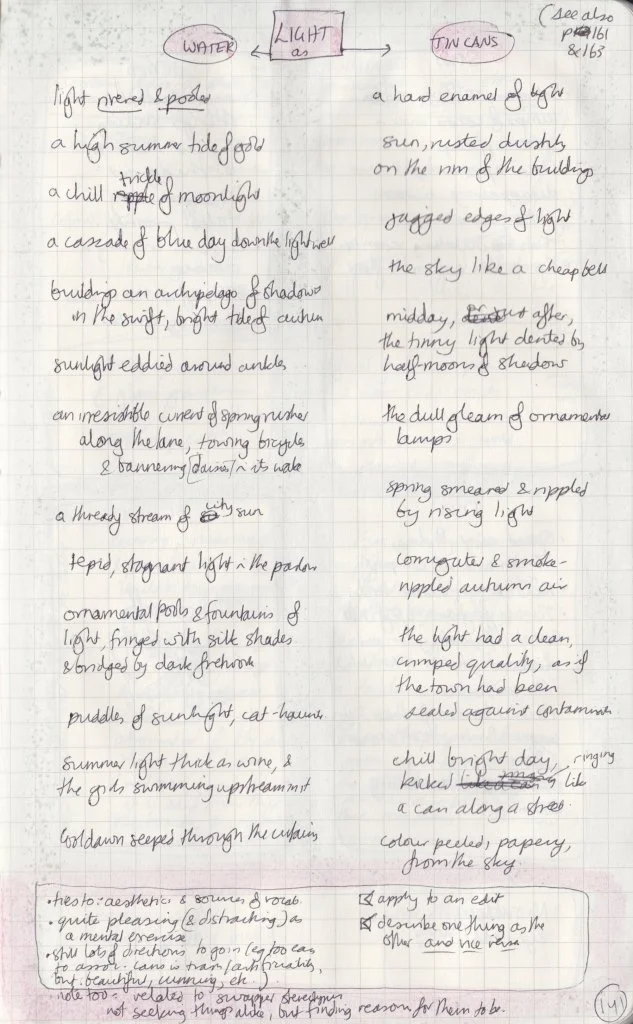 (see also
p 161
& 163
LIGHT
as
WATER
TIN CANS
light rivered & pooled
a high summer tide of gold
a chill trickle of moonlight
a cascade of blue day down the lightwell
buildings an archipelago of shadows
in the swift, bright tide of autumn
sunlight eddied around ankles
an irresistible current of spring rushes
along the lane, towing bicycles
& bannering [daisies] in its wake
a thready stream of city sun
tepid, stagnant light in the parlour
ornamental pools & fountains of
light, fringed with silk shades
& bridged by dark
puddles of sunlight, cat-haunted
summer light thick as wine, &
the girls swimming upstream in it
cool dawn seeped through the curtains
a hard enamel of light
sun, rusted dustily
on the rim of the buildings
jagged edges of light
the sky like a cheap bell
midday, or just after,
the tinny light dented by
half-moons of shadow
the dull gleam of ornamental
lamps
spring smeared & rippled
by rising light
corrugated & smoke-
rippled autumn air
the light had a clean,
crimped quality, as if
the town had been
sealed against contaminants
chill bright day, ringing
kicked like
a can along a street.
colour peeled, papery,
from the sky.
• ties to: aesthetics & sources of vocab
• quite pleasing (& distracting) as
a mental exercise
• still lots of directions to go in (eg too easy
to assoc. cans w trash/artificiality,
but beautiful, cunning, etc.)
note too: related to swapper stereotypes
not seeking things alike, but finding reasons for them to be.
apply to an edit
describe one thing as the
other and vice versa
141